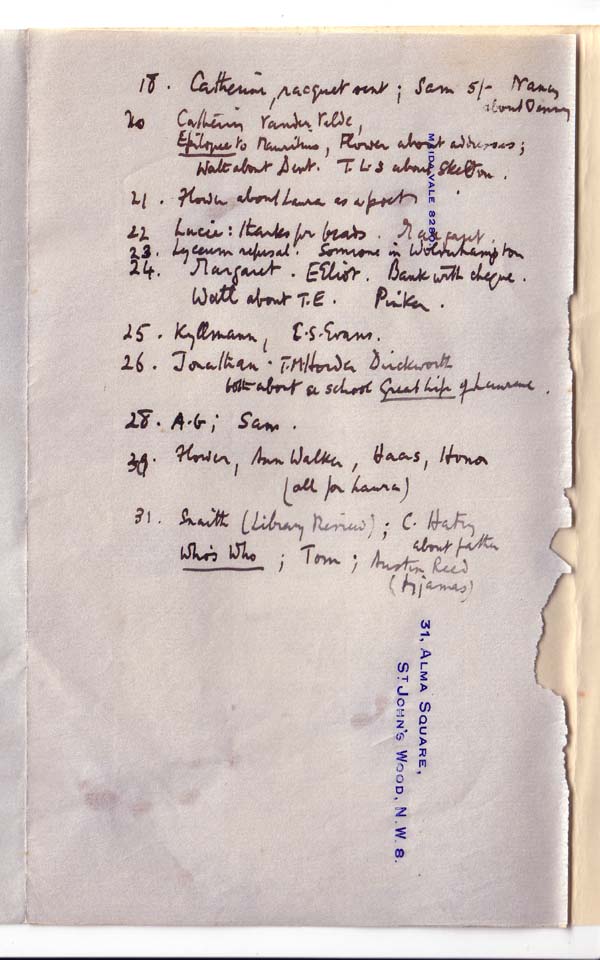 18. Catherine, racquet sent; Sam 5/- Nancy
about Denny
20 Catherine Vander Velde,
Epilogue to Mauritius, Flower about addresses;
Watt about Dent. T.L.S about Skelton.
21. Flower about Laura as a poet
22 Lucie: thanks for beads. Margaret.
23. Lyceum refusal. Someone in Wolverhampton
24. Margaret. E Eliot. Bank with cheque.
Watt about T.E. Pinker.
25. Kyllmann, E.S. Evans.
26. Jonathan. T.M. Horder Duckworth
both about a school Great Life of Lawrence.
28. A.G; Sam.
30. Flower, Ann Walker, Haas, Honor
(all for Laura)
31. Snaith (Library Review); C. Hatry
about father
Who's Who; Tom; Austin Reed
(Pyjamas)
MAIDA VALE
31, ALMA SQUARE,
ST JOHN'S WOOD, N.W.8.